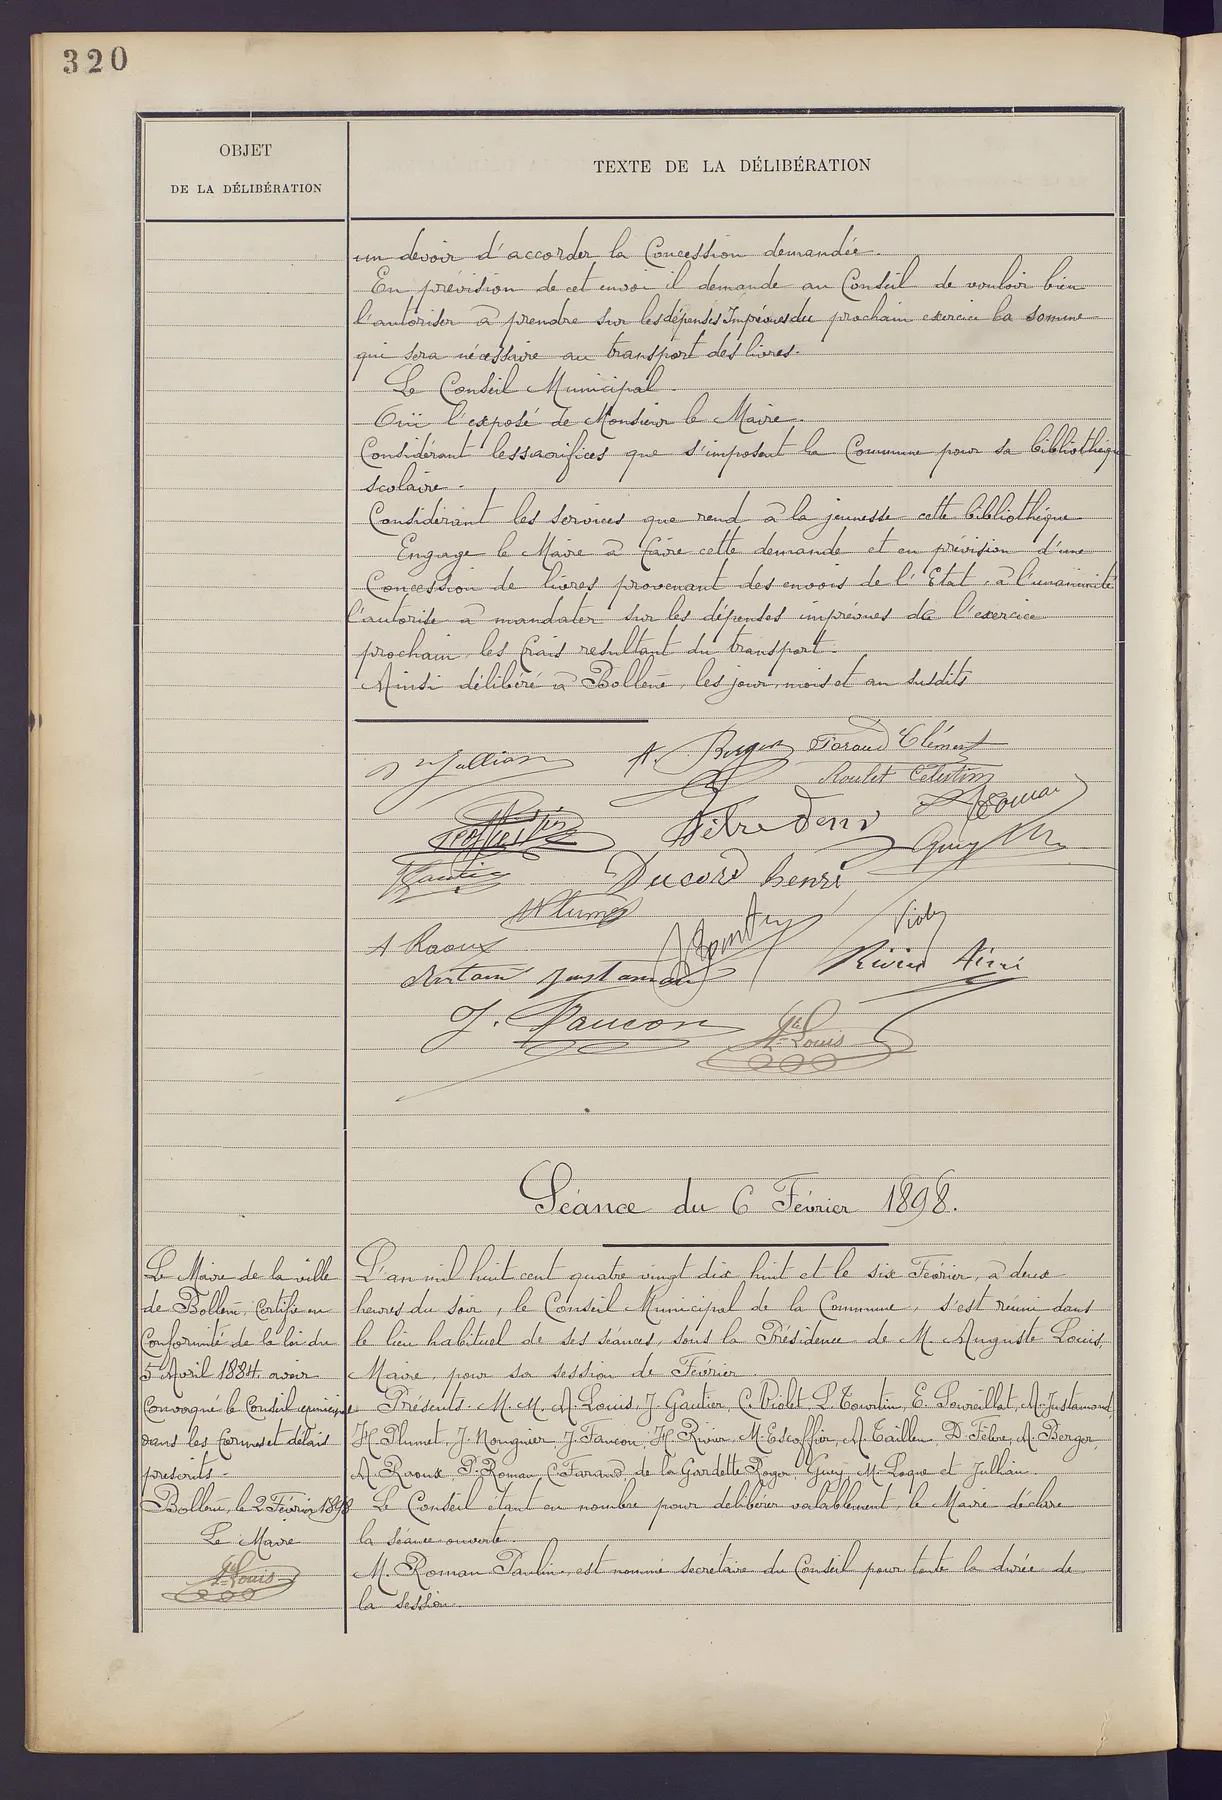 320
OBJET
DE LA DÉLIBÉRATION
TEXTE DE LA DÉLIBÉRATION
un devoir d'accorder la Concession demandée.
En prévision de cet envoi il demande au Conseil de vouloir bien
l'autoriser à prendre sur les dépenses Imprévues du prochain exercice la somme
qui sera nécessaire au transport des livres.
Le Conseil Municipal.
Ouï l'exposé de Monsieur le Maire.
Considérant les sacrifices que s'imposent la Commune pour sa bibliothèque
scolaire.
Considérant les services que rend à la jeunesse cette bibliothèque
Engage le Maire à faire cette demande et en prévision d'une
Concession de livres provenant des envois de l'Etat, à l'unanimité
l'autorise à mandater sur les dépenses imprévues de l'exercice
prochain les frais resultant du transport.
Ainsi délibéré à Bollène, les jour, mois et an susdits
Jullian
A. Berger
Faraud Clément
Roulet Célestin
Fèbre Denis
Roman
Guey
Gautier
Ducord henri
Plumet
A Raoux
Violet
Justamond
Rivier
J. Faucon
Ate Louis
Séance du 6 Février 1898.
Le Maire de la ville
de Bollène, Certifie en
Conformité de la loi du
5 Avril 1884, avoir
Convoqué le Conseil municipal
dans les formes et délais
prescrits.
Bollène, le 2 Février 1898
Le Maire
Ate Louis
L'an mil huit cent quatre vingt dix huit et le six Février, à deux
heures du soir, le Conseil Municipal de la Commune, s'est réuni dans
le lieu habituel de ses séances, sous la Présidence de M. Auguste Louis,
Maire, pour sa session de Février.
Présents. M. M. A. Louis, J. Gautier, C. Violet, L. Tourtin, E. Souveillat, A. Justamond,
H. Plumet, J. Nougnier, J. Faucon, H. Rivier, M. Escoffier, A. Taillen, D. Fèbre, A. Berger,
A. Raoux, P. Roman, C. Faraud, de la Gardette Roger, Guey, M. Loque et Jullian.
Le Conseil étant en nombre pour délibérer valablement, le Maire déclare
la séance ouverte.
M. Roman Paulin, est nommé secretaire du Conseil pour toute la durée de
la session.